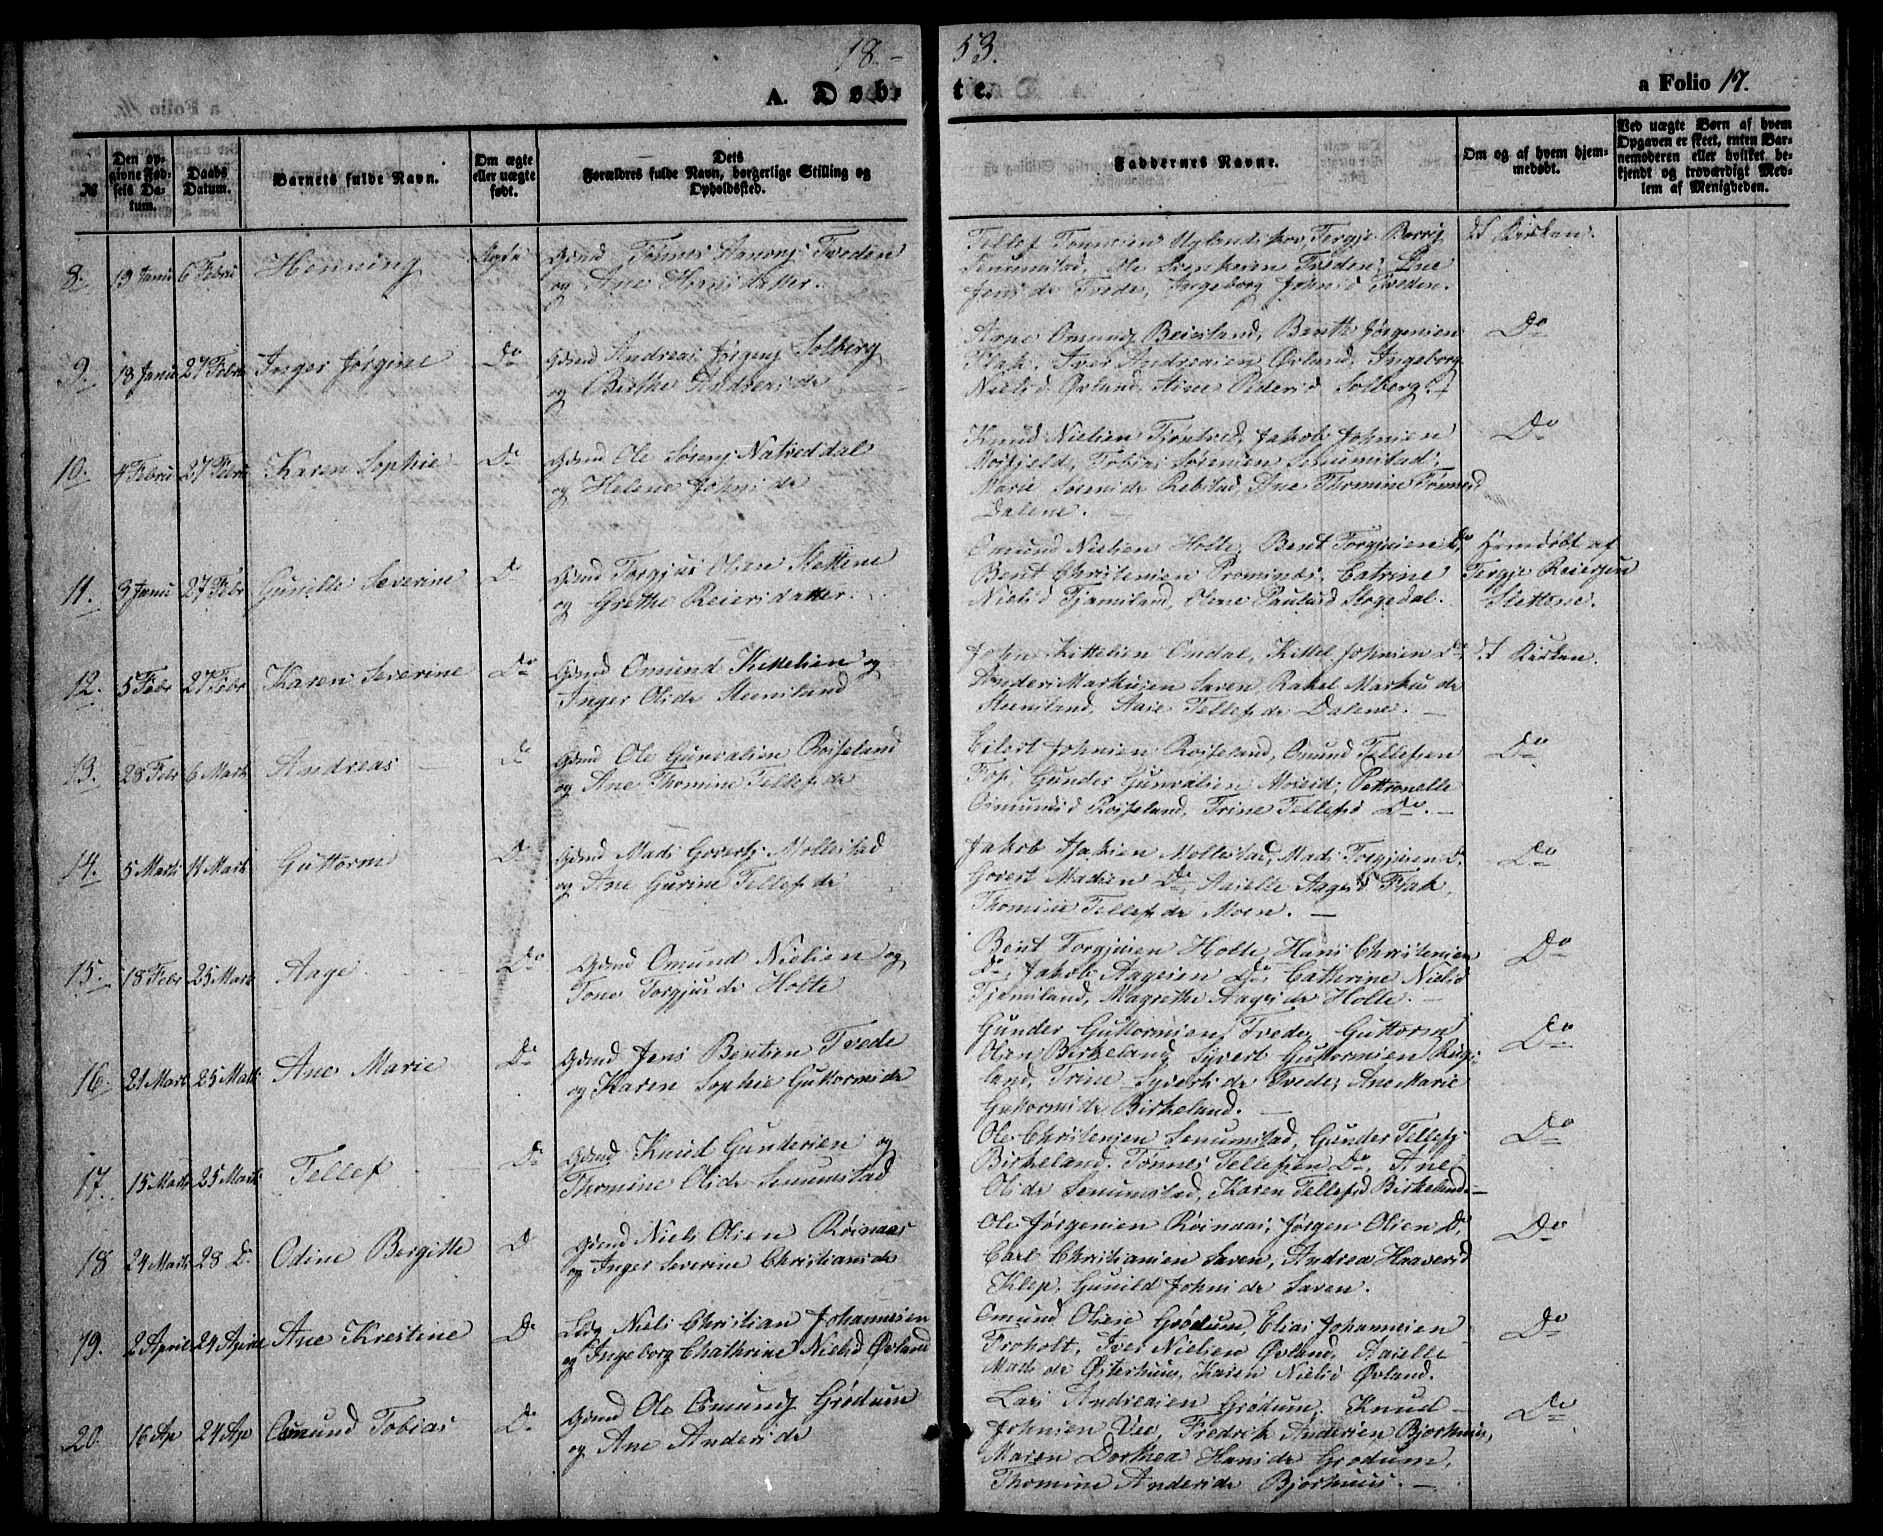 18 - 53.
A. Døbte. a Folio 17.
№
Den opgivne Fødsels Datum.
Daabs Datum.
Barnets fulde Navn.
Om ægte eller uægte født.
Dets Forældres fulde Navn, borgerlige Stilling og Opholdssted.
Faddernes Navne.
Om og af hvem hjemmedøbt.
Ved uægte Børn af hvem Opgaven er skeet, enten Barnemoderen eller hvilket bekjendt og troværdigt Medlem af Menigheden.
8. 19 Janu 6 Febru Henning Ægte Gdmd Tønnes Hansen Tveden
og Ane Hansdatter.
Tellef Tønnesen Uglandskov, Tergje
Senumstad, Ole Tveden, Line
Jens de Tvede, Ingeborg Johnsd Tveden.
I Kirken.
9. 18 Janu 27 Febru Inger Jørgine Do Gdmd Andreas Jørgens Solberg
og Birthe Andreas de
Arne Omunds Beisland, Benth Jørgensen
Flak, Iver Andreasen Øvland, Ingeborg
Nielsd Øvland, Stine Pedersd Solberg.
Do
10. 4 Febru 27 Febru Karen Sophie Do Gdmd Ole Sørens Natveddal
og Helene Johns de
Knud Nielsen Tjøntved, Jakob Johnsen
Mosfjeld, Tobias Sørensen Senumstad,
Marie Sørens de Rebstad, Ane Thomine Tønnesd
Dalene.
Do
11. 3 Janu 27 Febr Gunille Severine Do Gdmd Torgjus Olsen Slettene
og Grethe Reiersdatter.
Omund Nielsen Holte, Bent Torgjusen Do
Bent Christensen Catrine
Nielsd Tjamsland, Olene Paulsd Stogedal.
Hjemdøbt af
Tergje Reiersen
Slettene.
12. 5 Febr 27 Febr Karen Severine Do Gdmd Omund Kittelsen og
Inger Ols de Steensland
John Kittelsen Omdal, Kittel Johnsen Do,
Anders Markusen Saven, Rakel Markus de
Steensland, Aase Tellefs de Dalene.
I Kirken.
13. 28 Febr 6 Marts Andreas Do Gdmd Ole Gunvalsen Roiseland
og Ane Thomine Tellefs de
Eilert Johnsen Roiseland, Omund Tellefsen
Fos, Gunder Gunvalsen Moseid, Pettronelle
Omundsd Roiseland, Trine Tellefsd Do.
Do
14. 5 Marts 11 Marts Guttorm Do Gdmd Mads Goverts Mollestad
og Ane Gurine Tellefs de
Jakob Isaksen Mollestad, Mads Torgjusen Do
Govert Madsen Do, Aaselle Aagesd Flak,
Thomine Tellefs de Moen.
Do
15. 18 Febr 25 Marts Aage Do Gdmd Omund Nielsen og
Tone Torgjus de Holte
Bent Torgjusen Holte, Hans Christensen
Do, Jakob Aagesen Do, Catherine Nielsd
Tjamsland, Magrethe Aages de Holte.
Do
16. 21 Marts 25 Marts Ane Marie Do Gdmd Jens Bentsen Tvede
og Karen Sophie Guttorms de
Gunder Guttormsen Tvede, Guttorm
Olsen Birkeland, Syvert Guttormsen Rugs-
land, Trine Syverts de Tvede, Ane Marie
Guttorms de Birkeland.
Do
17. 15 Marts 25 Marts Tellef Do Gdmd Knud Gundersen og
Thomine Ols de Senumstad
Ole Christensen Senumstad, Gunder Tellefs
Birkeland, Tønnes Tellefsen Do, Ane
Ols de Senumstad, Karen Tellefsd Birkeland.
Do
18 24 Marts 28 Do Odine Bergitte Do Gdmd Niels Olsen Røinaas
og Inger Severine Christians de
Ole Jørgensen Røinaas, Jørgen Olsen Do,
Carl Christiansen Saven, Andrea Haaversd
Klep, Gunild Johns de Saven.
Do
19. 2 April 24 Aprill Ane Kristine Do Ldg Niels Christian Johannesen
og Ingeborg Chathrine Nielsd Øvland
Omund Olsen Grødum, Elias Johannesen
Froholt, Iver Nielsen Øvland, Aaselle
Mads de Østerhuus, Karen Nielsd Øvland.
Do
20. 16 Ap 24 Ap Omund Tobias Do Gdmd Ole Omunds Grødum
og Ane Anders de
Lars Andreasen Grødum, Knud
Johnsen Vee, Fredrik Andersen Bjorhuus,
Maren Dorthea Hans de Grødum,
Thomine Anders de Bjorhuus.
Do